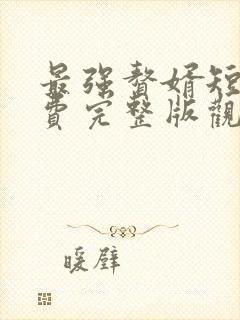 最强贅婿短
費完整版觀
暖壁